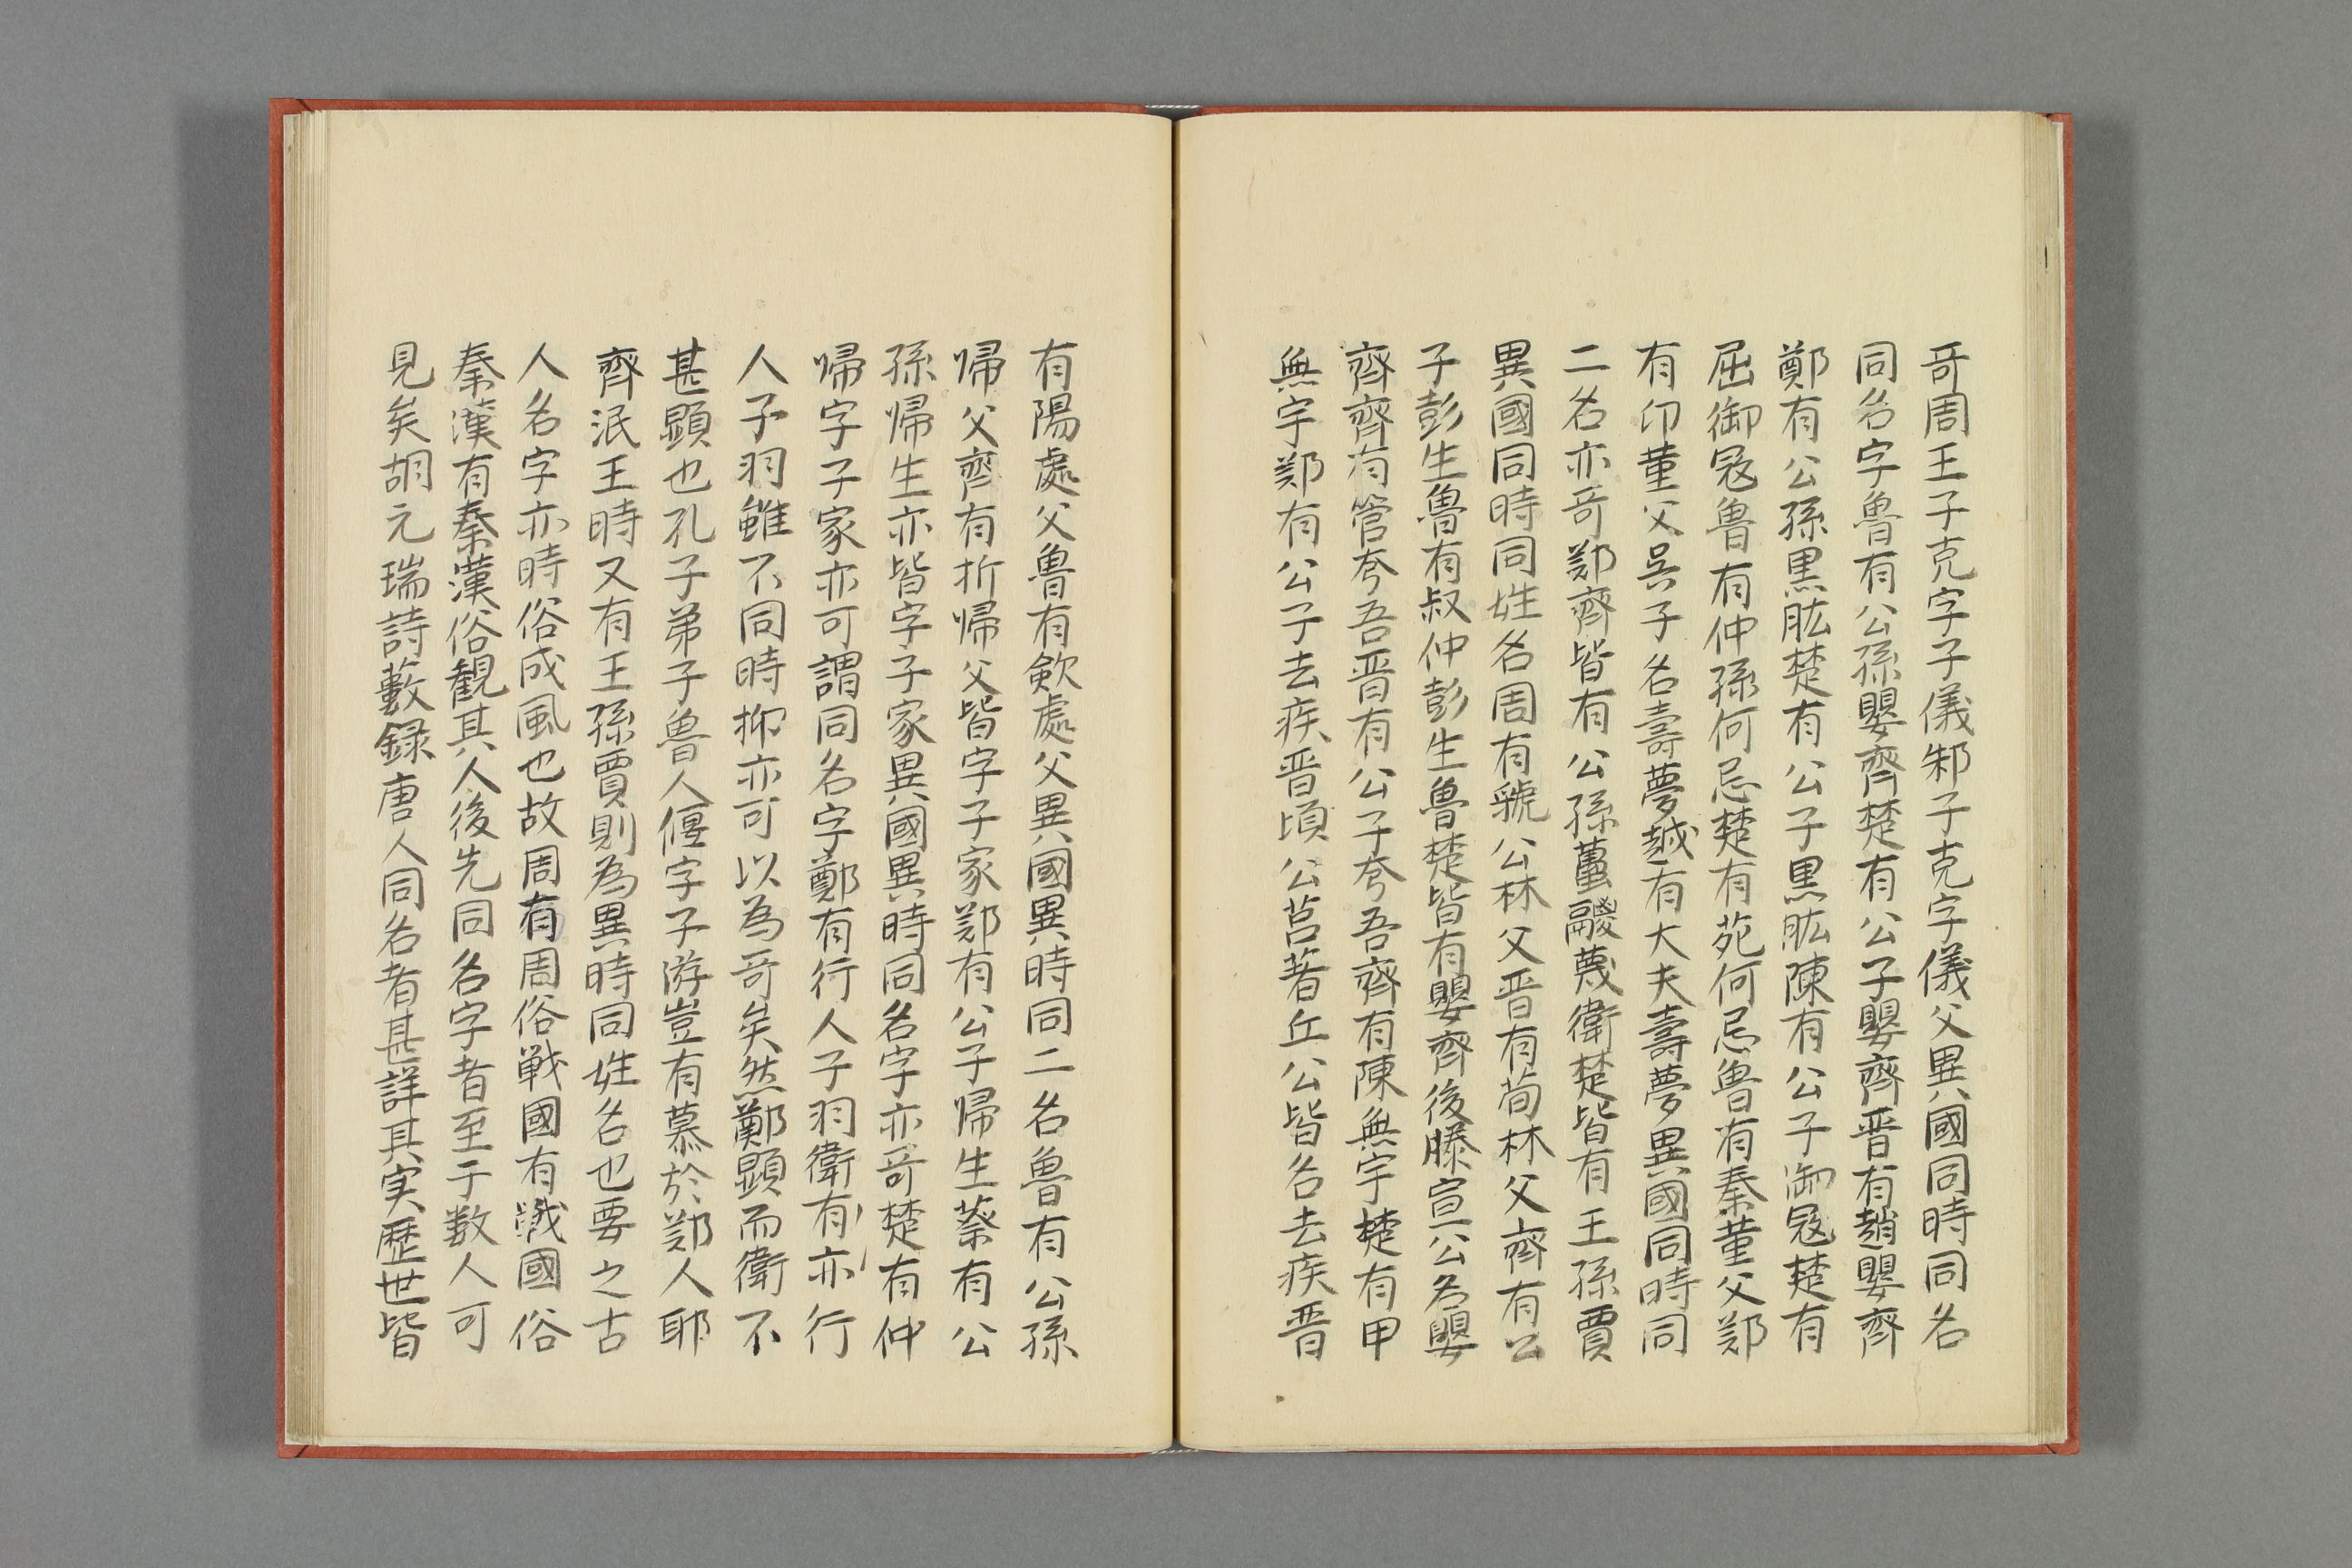 奇周王子克字子儀邾子克字儀父異國同時同名
同名字魯有公孫嬰齊楚有公子嬰齊晋有趙嬰齊
鄭有公孫黒肱楚有公子黒肱陳有公子御冦楚有
屈御冦魯有仲孫何忌楚有苑何忌魯有秦菫父鄭
有印菫父呉子名壽夢越有大夫壽夢異國同時同
二名亦奇鄭齊皆有公孫蠆鬷蔑衛楚皆有王孫賈
異國同時同姓名周有虢公林父晋有荀林父齊有公
子彭生魯有叔仲彭生魯楚皆有嬰齊後滕宣公名嬰
齊齊有管夸吾晋有公子夸吾齊有陳無宇楚有申
無宇鄭有公子去疾晋頃公莒著丘公皆名去疾晋
有陽處父魯有欮處父異國異時同二名魯有公孫
帰父齊有析帰父皆字子家鄭有公子帰生蔡有公
孫帰生亦皆字子家異國異時同名字亦奇楚有仲
帰字子家亦可謂同名字鄭有行人子羽衛有亦行
人子羽雖不同時抑亦可以為奇矣然鄭顕而衛不
甚顕也孔子弟子魯人偃字子游豈有慕於鄭人耶
齊泯王時又有王孫賈則為異時同姓名也要之古
人名字亦時俗成風也故周有周俗戦國有戦國俗
秦漢有秦漢俗観其人後先同名字者至于数人可
見矣胡元瑞詩藪録唐人同名者甚詳其実歴世皆